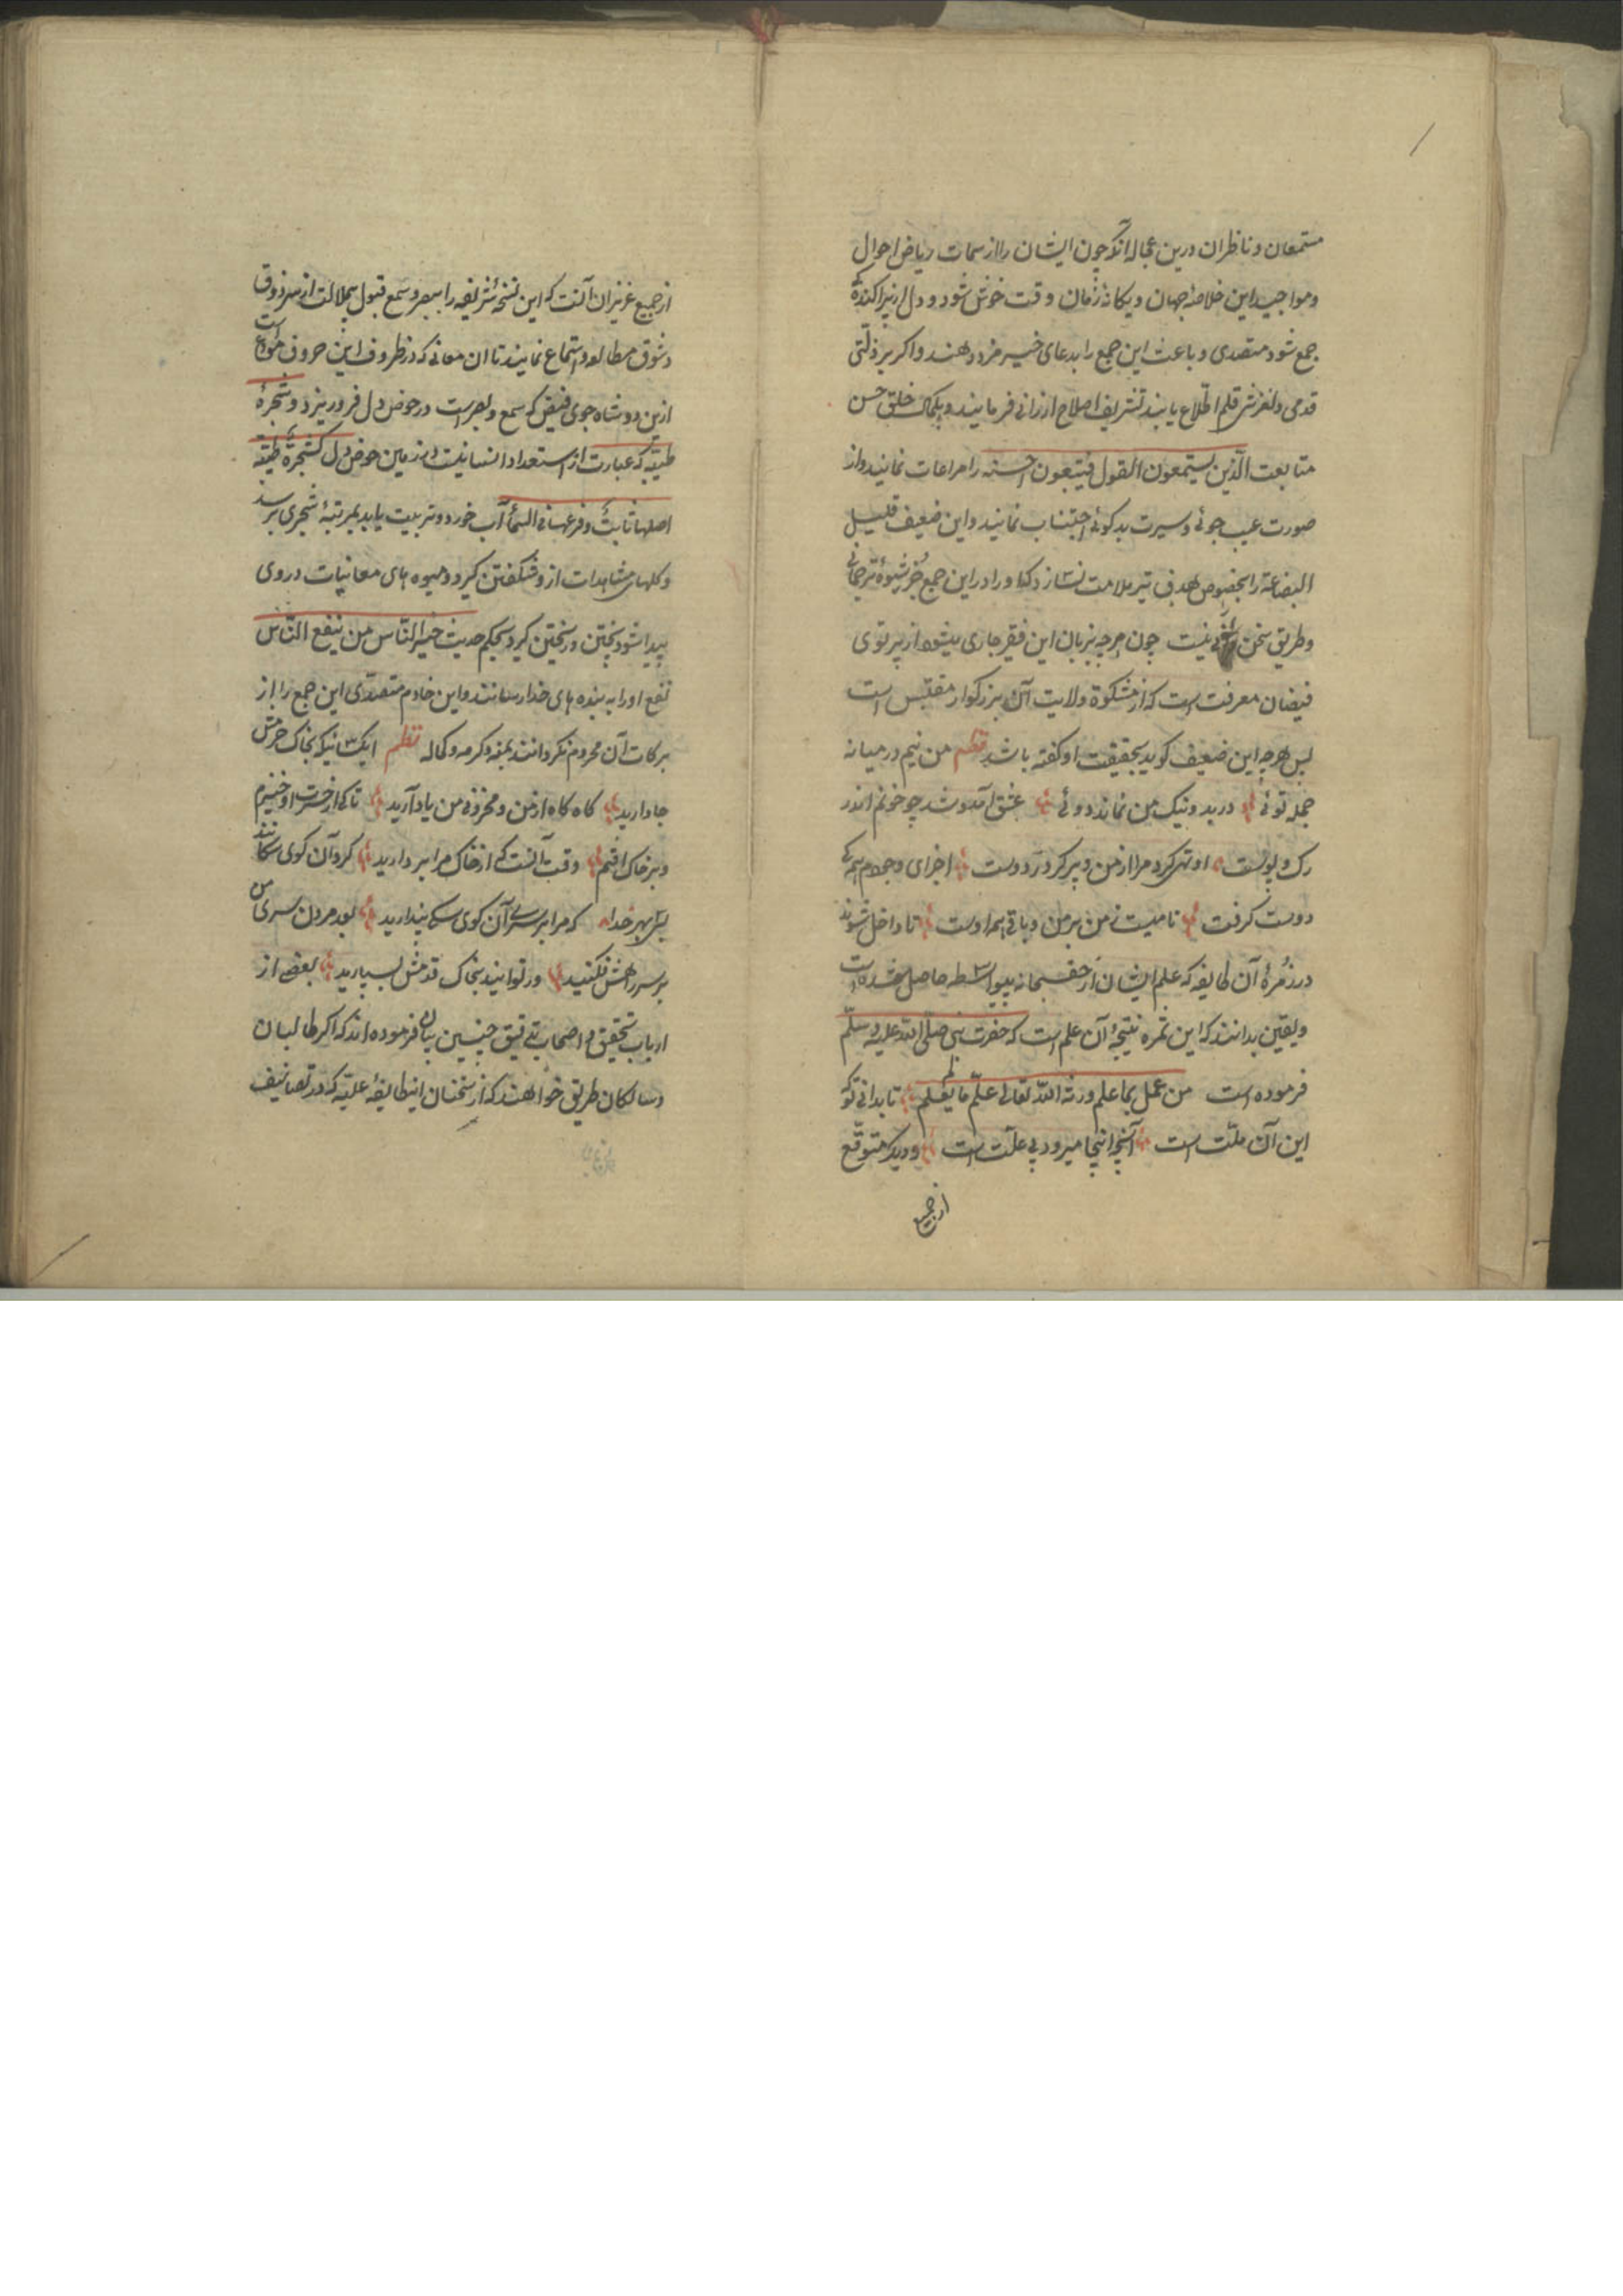 مستمعان و ناظران درین عجاله آنکه چون ایشان را از سمات ریاض احوال
و مواجید این خلاصهٔ جهان و یکانهٔ زمان وقت خوش شود و دل از پراکندگی
جمع شود متصدی و باعث این جمع را بدعای خیر مزد دهند و اکر بر ذلتی
قدمی و لغزش قلم اطلاع یابند تشریف اصلاح ارزانی فرمایند و بکمال خلق حسن
متابعت الذین یستمعون القول فیتبعون احسنه را مراعات نمایند و از
صورت عیب جوئی و سیرت بدکوئی اجتناب نمایند و این ضعیف قلیل
البضاعة را بخصوص هدف تیر ملامت نسازد که او را در این جمع جز شیوهٔ ترجمانی
و طریق سخن نیست چون هرچه بزبان این فقیر جاری میشود از پرتوی
فیضان معرفت است که از مشکوة ولایت آن بزرکوار مقتبس است
پس هرچه این ضعیف کوید بحقیقت او کفته باشد نظم من نیم در میانه
جمله توئی در بد و نیک من نماند دوئی عشق آمد و شد چو خونم اندر
رک و پوست او تهی کرد مرا از من و پر کرد ز دوست اجزای وجودم همکی
دوست کرفت نامیست ز من بر من و باقی همه اوست تا داخل شوند
در زمرهٔ آن طایفه که علم ایشان از حق سبحانه بیواسطه حاصل شده است
و یقین بدانند که این ثمره نتیجهٔ آن علم است که حضرت نبی صلی الله علیه وسلم
فرموده است من عمل بما علم ورثه الله تعالی علم ما لم یعلم تا بدانی که
این آن ملت است آنچه اینجا میرود بی علت است و دیکر متوقع
از جمیع
از جمیع عزیزان آنست که این نسخهٔ شریفه را ببصر و سمع قبول بیملالت از سر ذوق
و شوق مطالعه و استماع نمایند تا ان معانی که در ظروف این حروف مودع است
ازین دو شاه جوی فیض که سمع و بصر است در حوض دل فرو ریزد و شجرهٔ
طیبه که عبارت از استعداد انسانیت در زمین حوض دل کشجرة طیبة
اصلها ثابت و فرعها فی السماء آب خورد و تربیت یابد بمرتبهٔ شجری برسد
و کلهای مشاهدات از و شکفتن کیرد و میوه های معاینات در وی
پیدا شود پختن و رسیدن کیرد بحکم حدیث خیر الناس من ینفع الناس
نفع او را به بنده های خدا رسانند و این خادم متصدی این جمع را از
برکات آن محروم نکردانند بمنه و کرمه و کماله نظم ایکسانیکه بخاک درش
جا دارید کاه کاه از من و محزونی من یاد آرید تا کی از حسرت او خیزم
و بر خاک افتم وقت آنست که از خاک مرا بردارید کر د آن کوی سکانند
بسی بهر خدا که مرا بر سر آن کوی سکی پندارید بعد مردن سر من
بر سر راهش فکنید ور توانید بخاک قدمش بسپارید بعضی از
ارباب تحقیق و اصحاب تدقیق چنین بیان فرموده اند که اکر طالبان
و سالکان طریق خواهند که از سخنان اینطایفهٔ علیه که در تصانیف